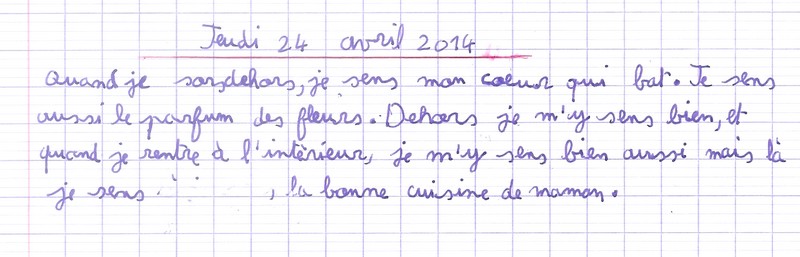 Jeudi 24 avril 2014
Quand je sorsdehors, je sens mon coeur qui bat. Je sens
aussi le parfum des fleurs. Dehors je m'y sens bien, et
quand je rentre à l'intérieur, je m'y sens bien aussi mais là
je sens , la bonne cuisine de maman.